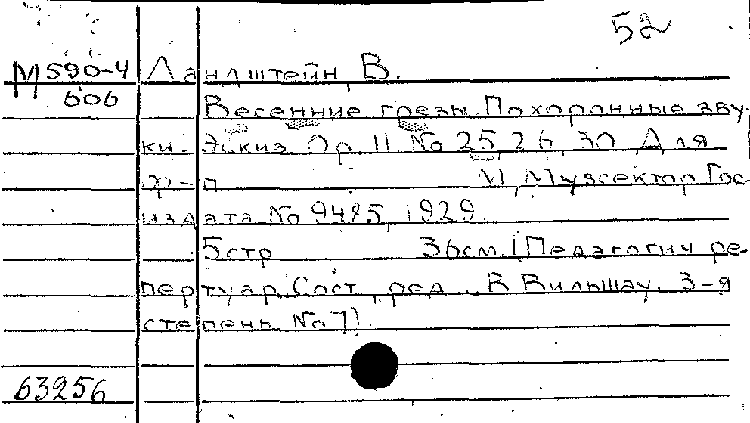 52
М 590-4 Ландштейн, В.
606
Весенние грезы. Похоронные зву-
ки. Эскиз. Op. 11 No 25, 26, 30. Для
ф-п. М., Музсектор Гос-
издата No 9495, 1929.
5 стр 36 см. (Педагогич ре-
пертуар. Сост., ред. В Вильшау. 3-я
степень No 7).
63256